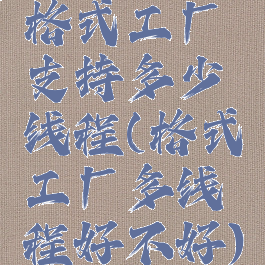 格式工厂
支持多少
线程(格式
工厂多线
程好不好)